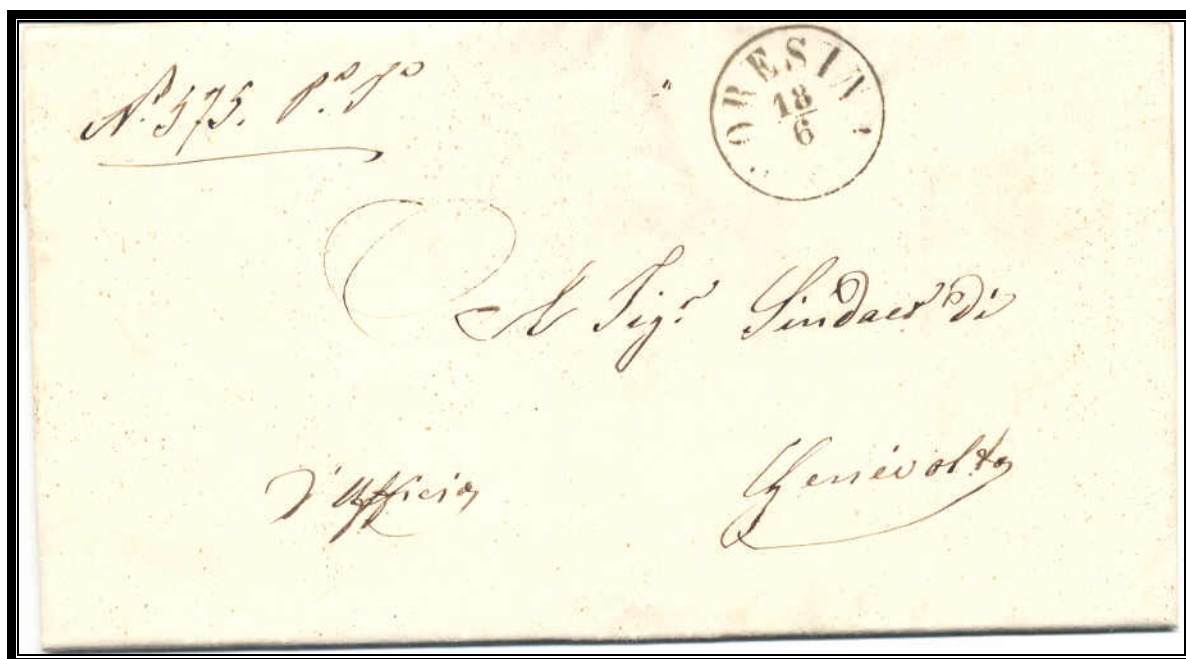 N.° 575. P.° P.°
ORESIN
18
6
Al Sig.r Sindaco di
d'Ufficio
Genivolta